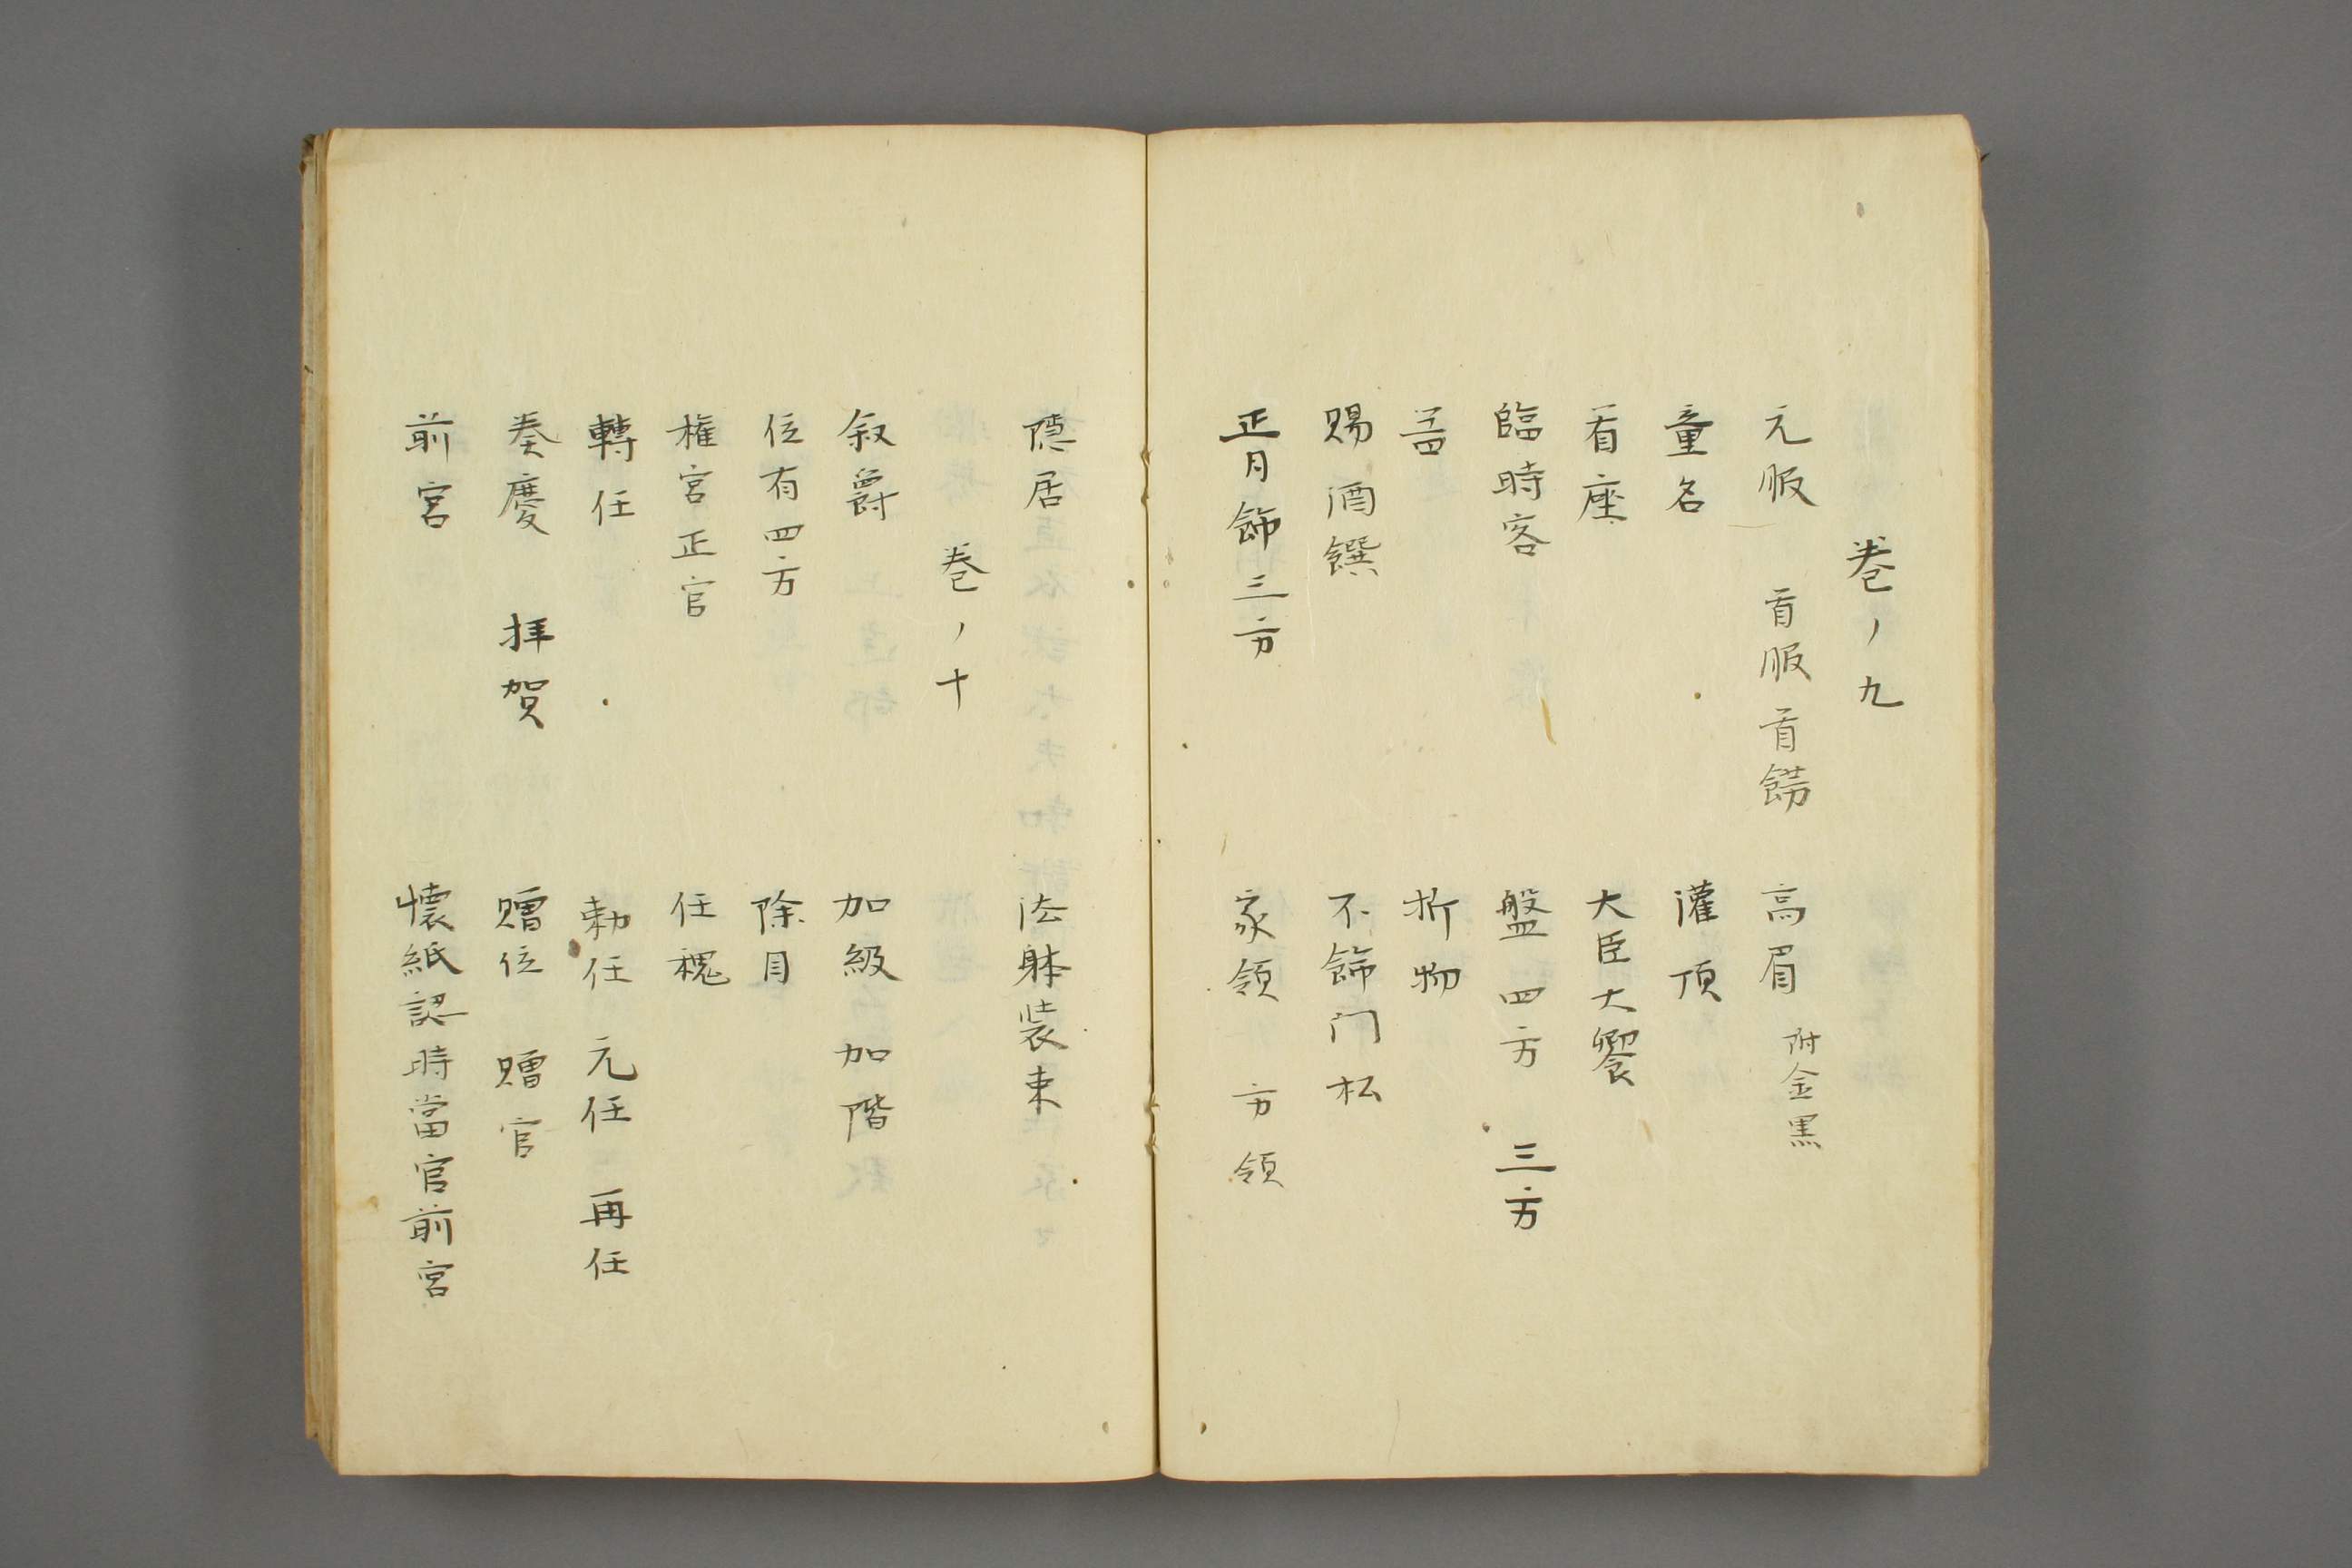 巻ノ九
元服　首服首餝　高眉 附金黒
童名　灌頂
着座　大臣大饗
臨時客　盤四方　三方
盖　折物
賜酒饌　不餝门松
正月餝三方　家領　方領
隠居　法躰装束
巻ノ十
叙爵　加級　加階
位有四方　除目
権官正官　任槐
轉任　勅任　元任　再任
奏慶　拝賀　贈位　贈官
前官　懐紙認時當官前官